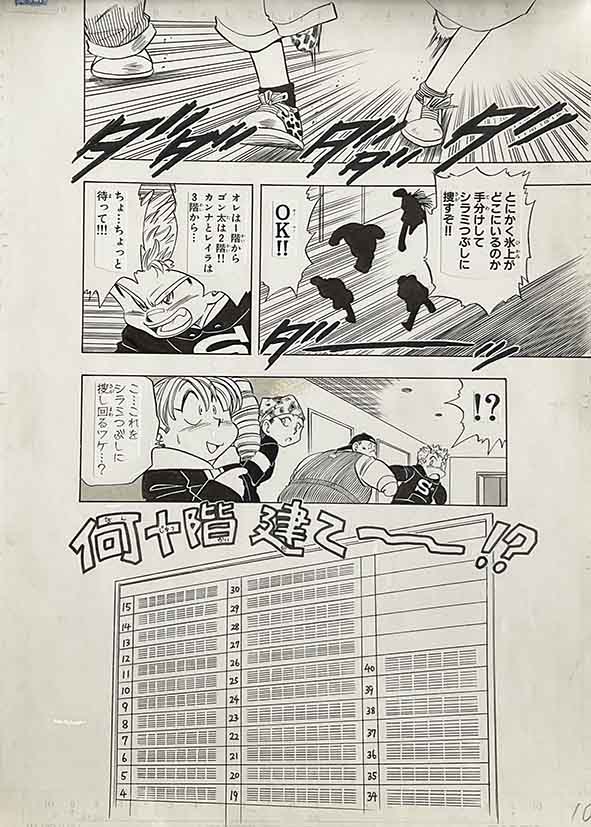 ダダッ
ダダッ
ダッ
とにかく氷上が
どこにいるのか
手分けして
シラミつぶしに
捜すぞ!!
OK!!
ダッ
オレは1階から
ゴン太は2階!!
カンナとレイラは
3階から…
ちょ…ちょっと
待って!!!
!?
こ…これを
シラミつぶしに
捜し回るワケ…?
何十階建て〜〜!?
15
14
13
12
11
10
9
8
7
6
5
4
30
29
28
27
26
25
24
23
22
21
20
19
40
39
38
37
36
35
34
10